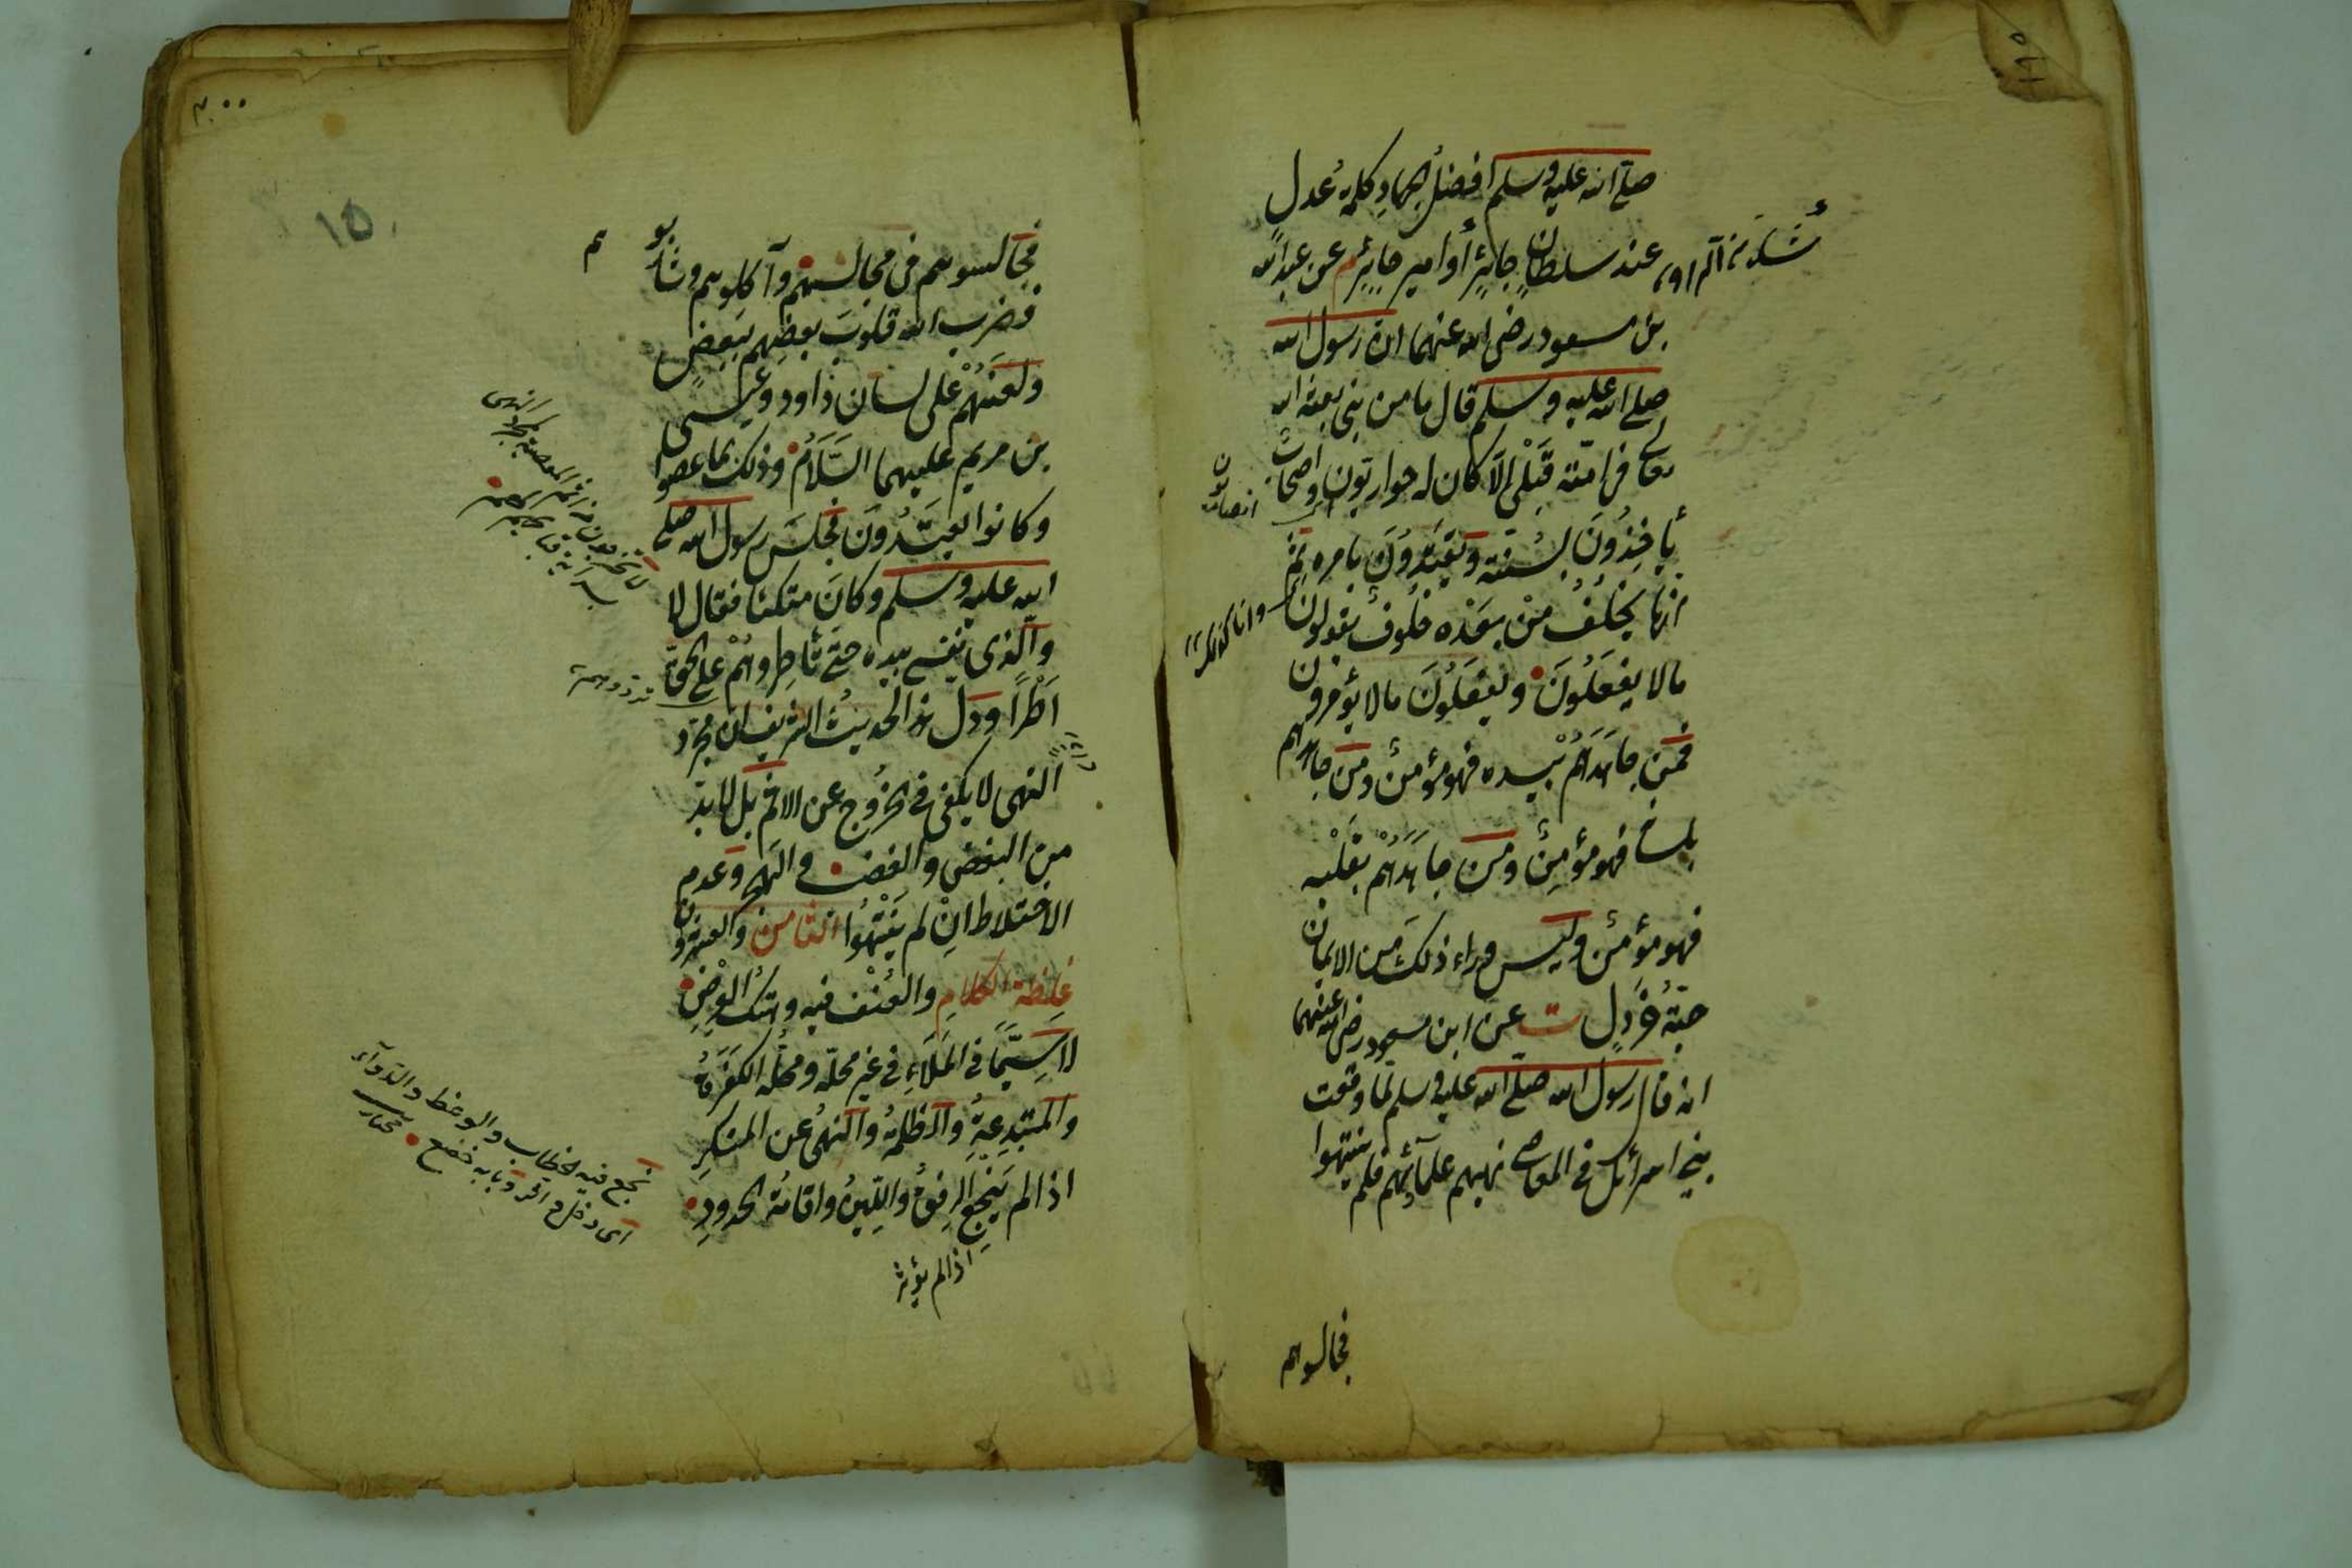 صلى الله عليه وسلم افضل الجهاد كلمة عدل
عند سلطان جائر أو امير جائر م عن عبد الله
بن مسعود رضى الله عنهما ان رسول الله
صلى الله عليه وسلم قال ما من نبى بعثه الله
تعالى فى امته قبلى الا كان له حواريون واصحاب
يأخذون بسنته ويقتدون بامره ثم
انها يخلف من بعده خلوف يقولون
مالا يفعلون ويفعلون مالا يؤمرون
فمن جاهدهم بيده فهو مؤمن ومن جاهدهم
بلسانه فهو مؤمن ومن جاهدهم بقلبه
فهو مؤمن وليس وراء ذلك من الايمان
حبة خردل ت عن ابن مسعود رضى الله عنهما
انه قال رسول الله صلى الله عليه وسلم لما وقعت
بنى اسرائل فى المعاصى نهيهم علمآئهم فلم ينتهوا
فجالسوهم
١٩٥
٢٠٠
١٥
فجالسوهم فى مجالسهم وآكلوهم وشاربو
هم
فضرب الله قلوب بعضهم ببعض
ولعنهم على لسان داود وعيسى
بن مريم عليهما السلام وذلك بما عصوا
وكانوا يعتدون فجلس رسول الله صلى
الله عليه وسلم وكان متكئا فقال لا
والذى نفسى بيده حتى تأطروهم على الحق
اطرا ودل هذا الحديث الشريف ان مجرد
النهى لا يكفى فى الخروج عن الاثم بل لا بد
من البغض والغضب فى الله وعدم
الاختلاط ان لم ينتهوا الثامن والعشرون
غلظة الكلام والعنف فيه وهتك العرض
لا سيما فى الملاء فى غير محله ومحله الكفرة
والمبتدعة والظلمة والنهى عن المنكر
اذا لم ينجع الرفق واللين واقامة الحدود
اذا لم يؤثر
نجع فيه الخطاب والوعظ والدوآء
اى دخل واثر وبابه خضع مختار